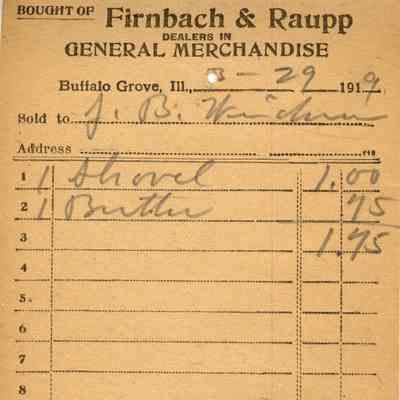 BOUGHT OF Firnbach & Raupp
DEALERS IN
GENERAL MERCHANDISE
Buffalo Grove, Ill., 3 - 29 1919
Sold to J. B. Weidner
Address
1 1 Shovel 1.00
2 1 Butter 75
3 1.75
4
5
6
7
8